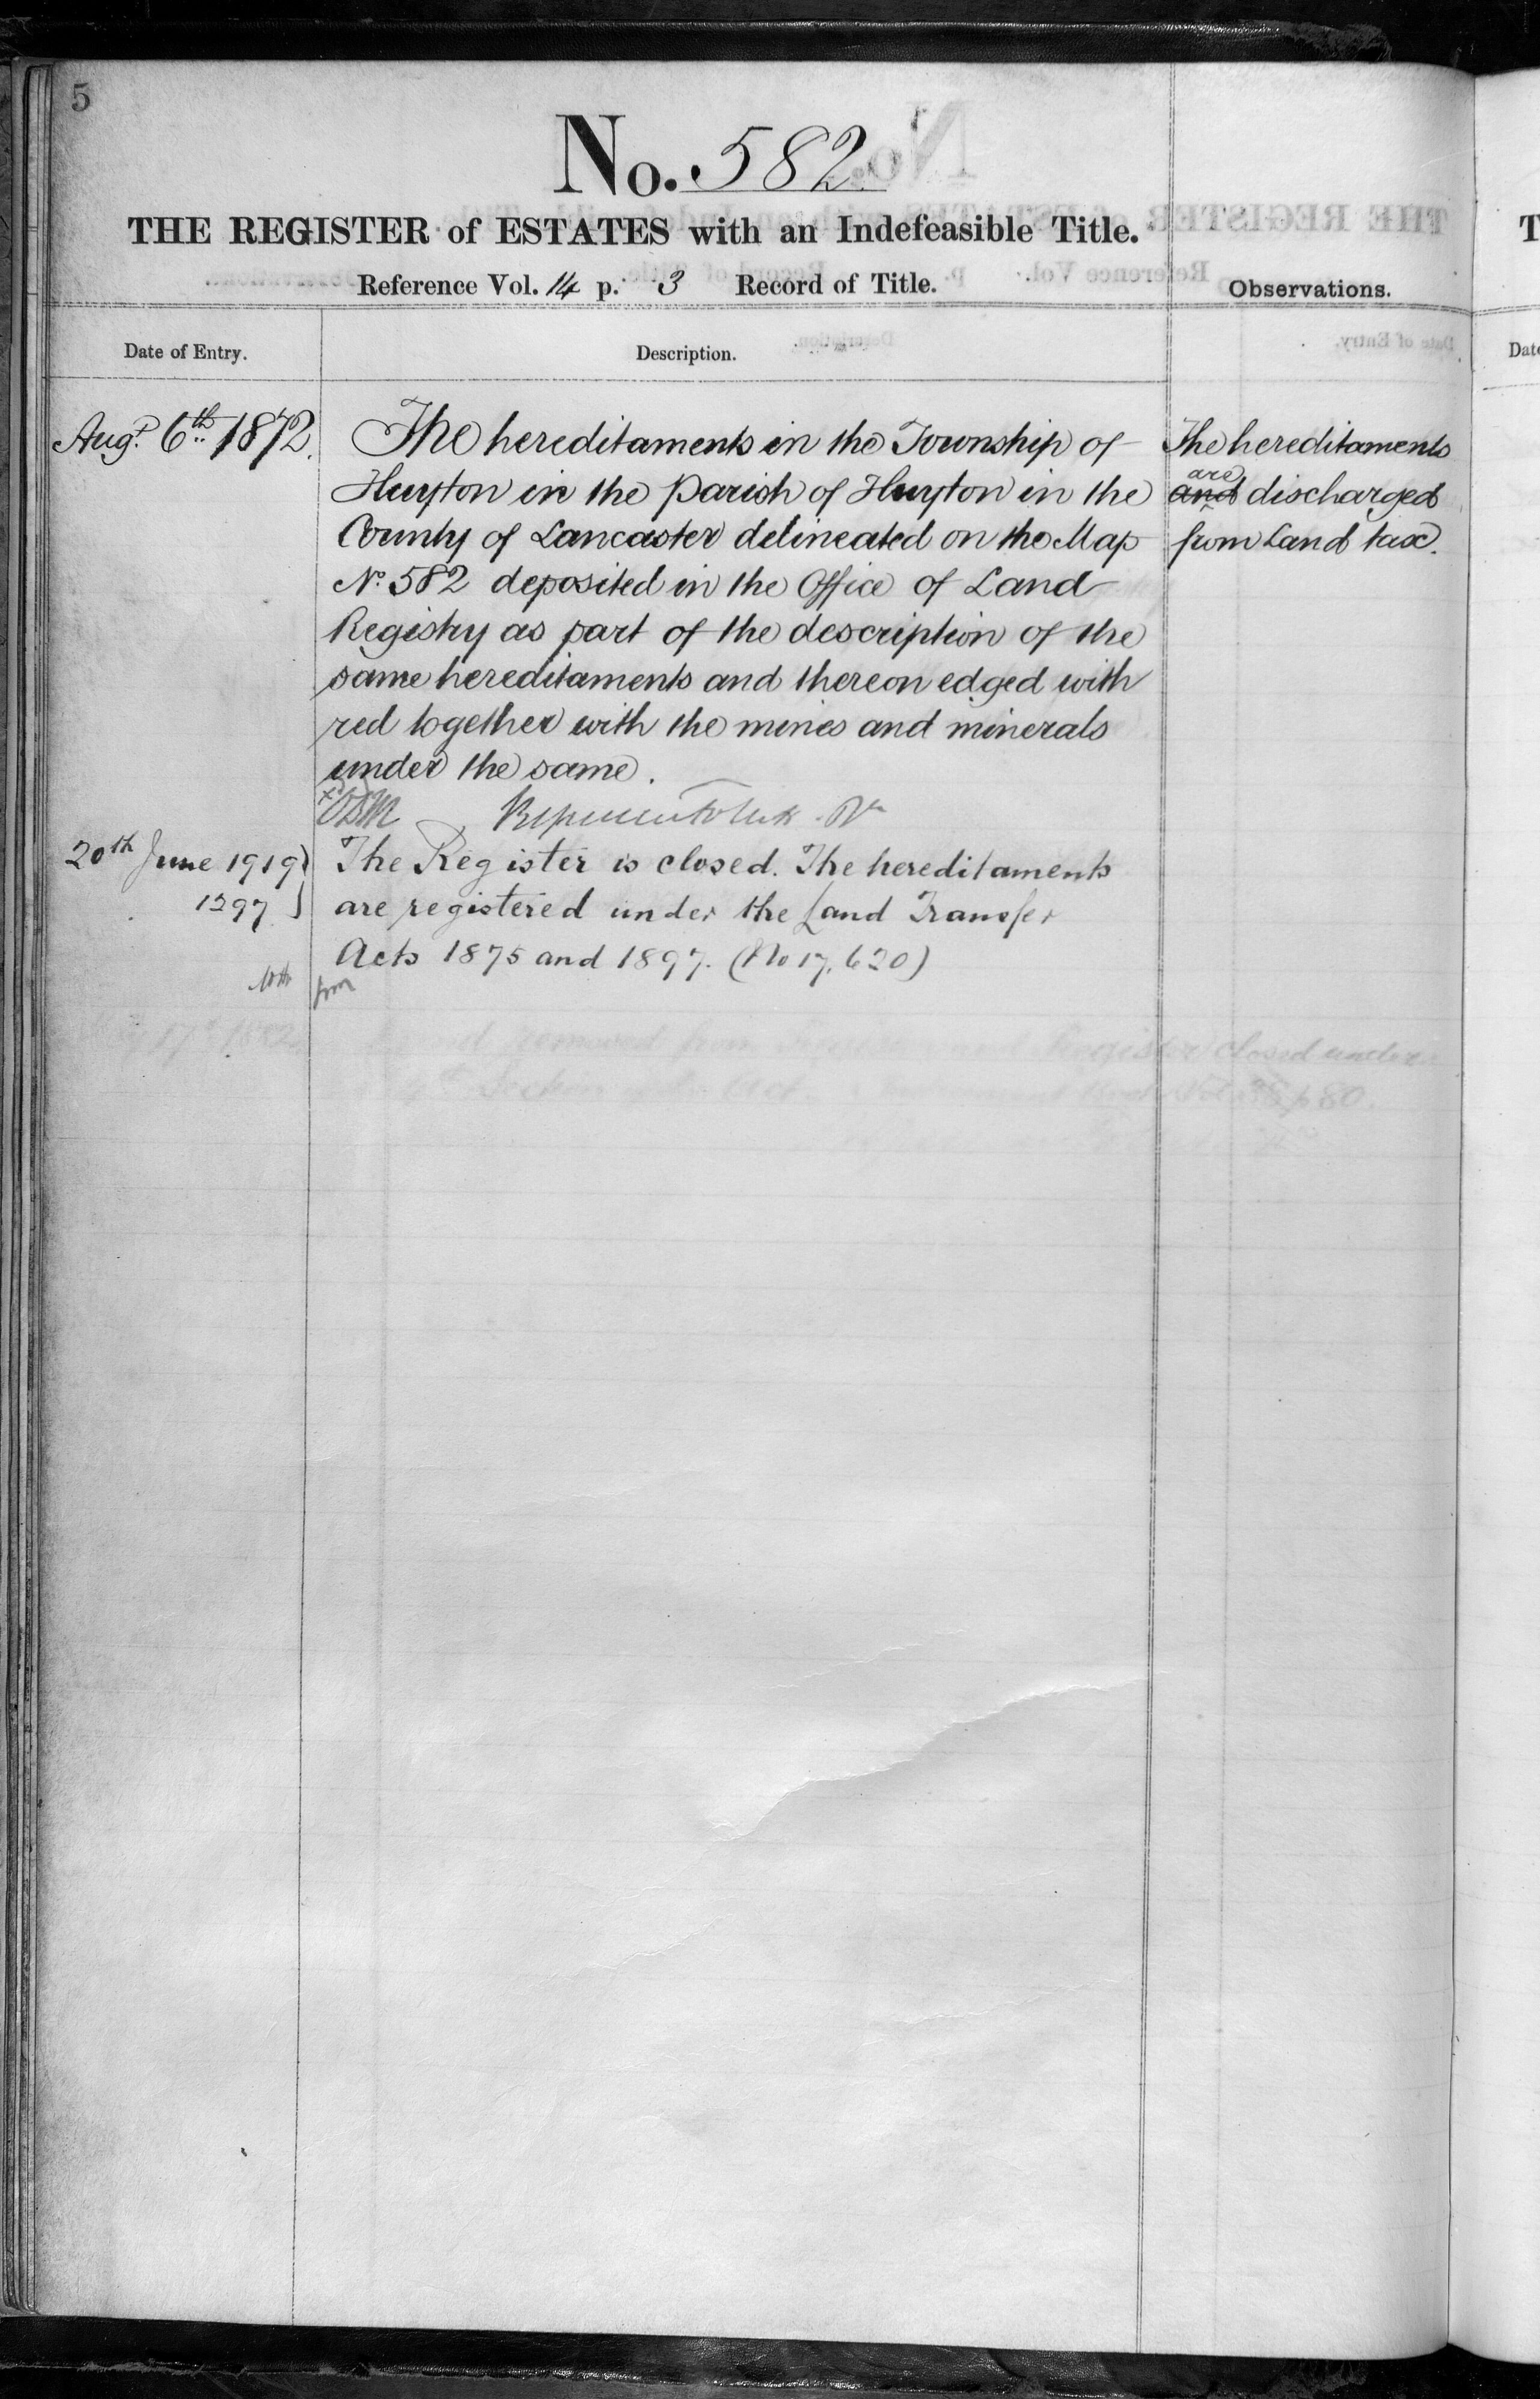 5
No. 582
THE REGISTER of ESTATES with an Indefeasible Title.
Reference Vol. 14 p. 3 Record of Title.
Observations.
Date of Entry.
Description.
Augt. 6th 1872.
The hereditaments in the Township of
Huyton in the Parish of Huyton in the
County of Lancaster delineated on the Map
No. 582 deposited in the Office of Land
Registry as part of the description of the
same hereditaments and thereon edged with
red together with the mines and minerals
under the same.
The hereditaments
are
and discharged
from Land tax.
20th June 1919
1297
The Register is closed. The hereditaments
are registered under the Land Transfer
Acts 1875 and 1897. (No 17,620)
Register closed under
p 80.